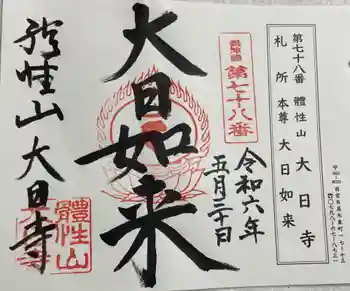 第七十八番 體性山 大日寺
札所本尊 大日如来
第七十八番
令和六年
五月二十日
大日如来
體性山 大日寺
體性山